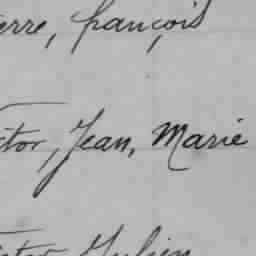 erre, françois
ctor, Jean, Marie
Julien